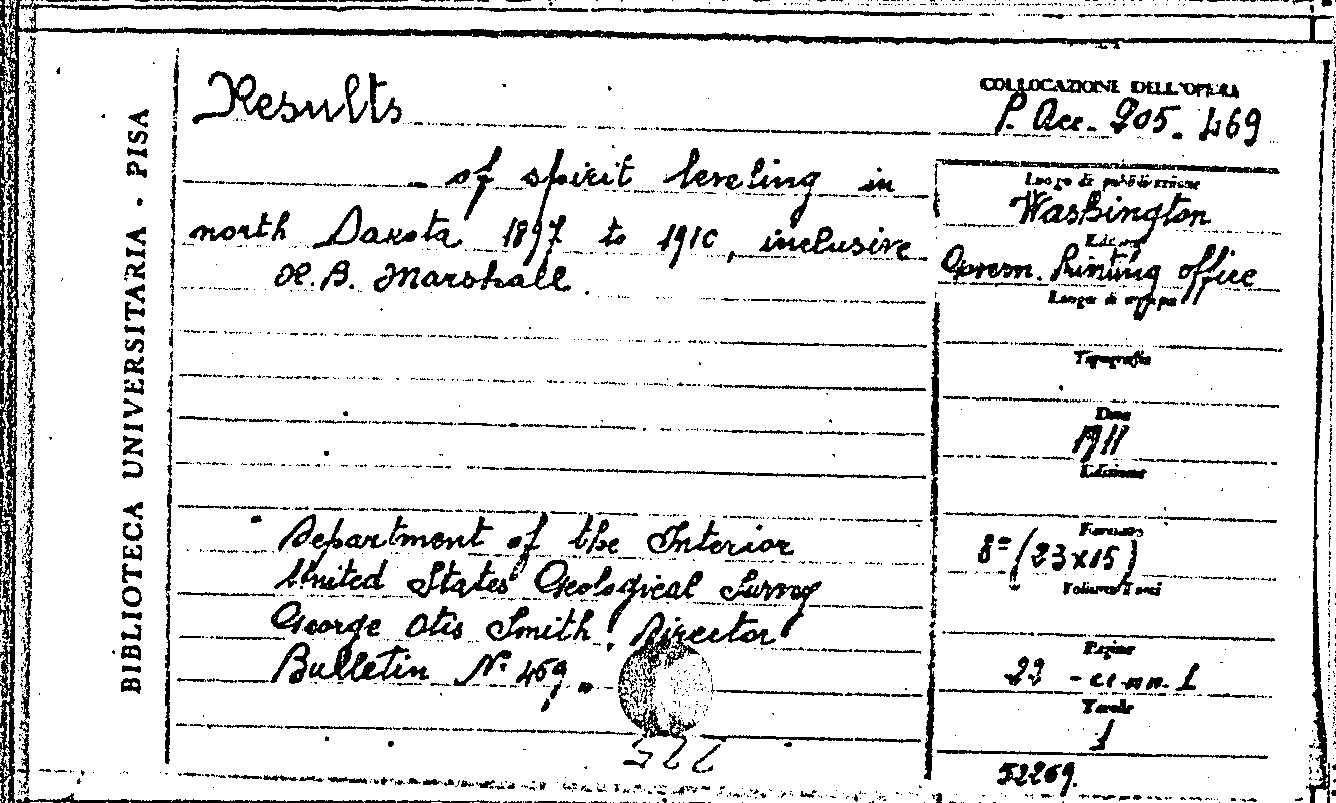 BIBLIOTECA UNIVERSITARIA - PISA
Results
of spirit leveling in
north Dakota 1897 to 1910, inclusive
R. B. Marshall.
Department of the Interior
United States Geological Survey
George Otis Smith, Director
Bulletin N° 469
COLLOCAZIONE DELL'OPERA
P. Acc. 905. 469
Luogo di pubblicazione
Washington
Editore
Govern. Printing office
Luogo di stampa
Tipografia
Data
1911
Edizione
Formato
8° (23x15)
Volumi/Tomi
Pagine
c. nn. 1
Tavole
1
52269.